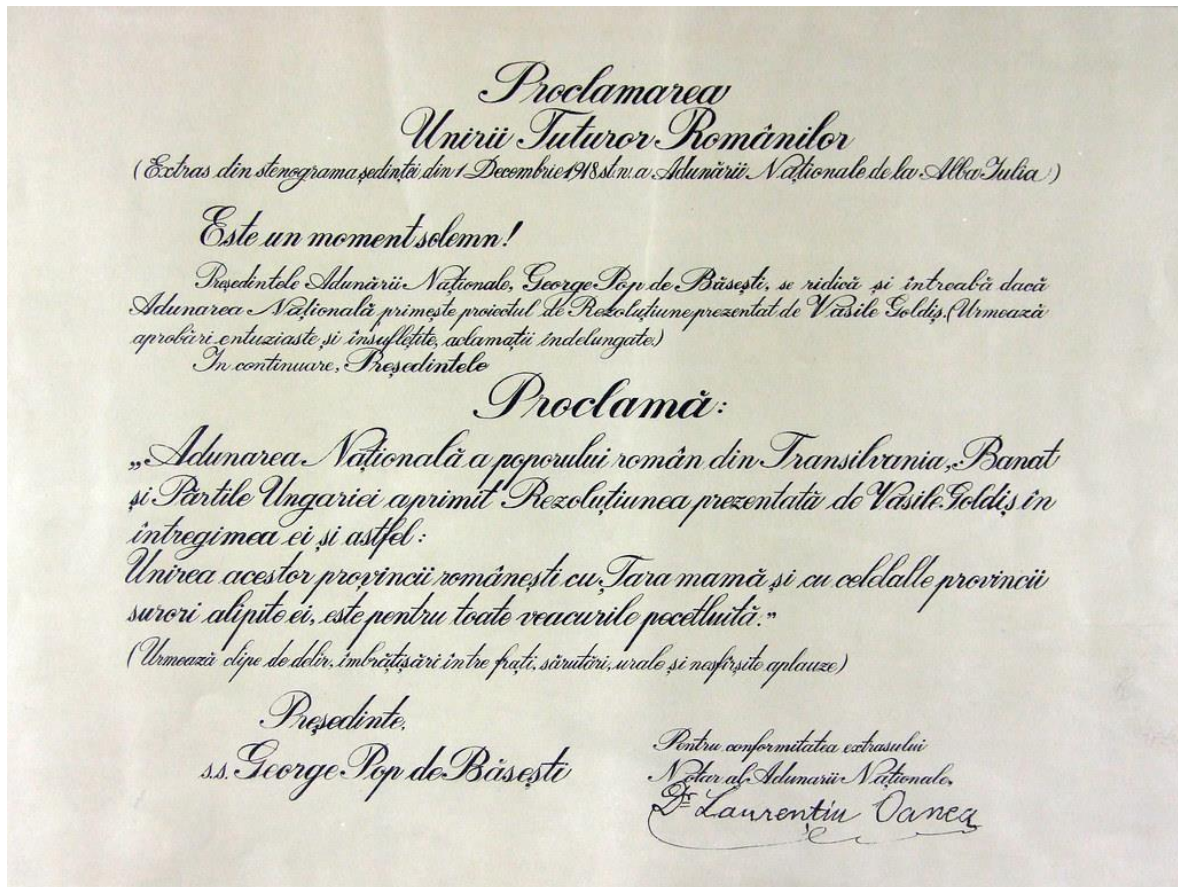 Proclamarea
Unirii Tuturor Românilor
(Extras din stenograma ședinței din 1 Decembrie 1918 st. n. a Adunării Naționale de la Alba Iulia)
Este un moment solemn!
Președintele Adunării Naționale, George Pop de Băsești, se ridică și întreabă dacă
Adunarea Națională primește proiectul de Rezoluțiune prezentat de Vasile Goldiș. (Urmează
aprobări entuziaste și însuflețite, aclamații îndelungate)
In continuare, Președintele
Proclamă:
„Adunarea Națională a poporului român din Transilvania, Banat
și Părțile Ungariei a primit Rezoluțiunea prezentată de Vasile Goldiș în
întregimea ei și astfel:
Unirea acestor provincii românești cu Țara mamă și cu celdalte provincii
surori alipite ei, este pentru toate veacurile pecetluită."
(Urmează clipe de delir, îmbrățișări între frați, sărutări, urale și nesfîrșite aplauze)
Președinte,
s.s. George Pop de Băsești
Pentru conformitatea extrasului
Notar al Adunarii Naționale,
Dr Laurențiu Oanea